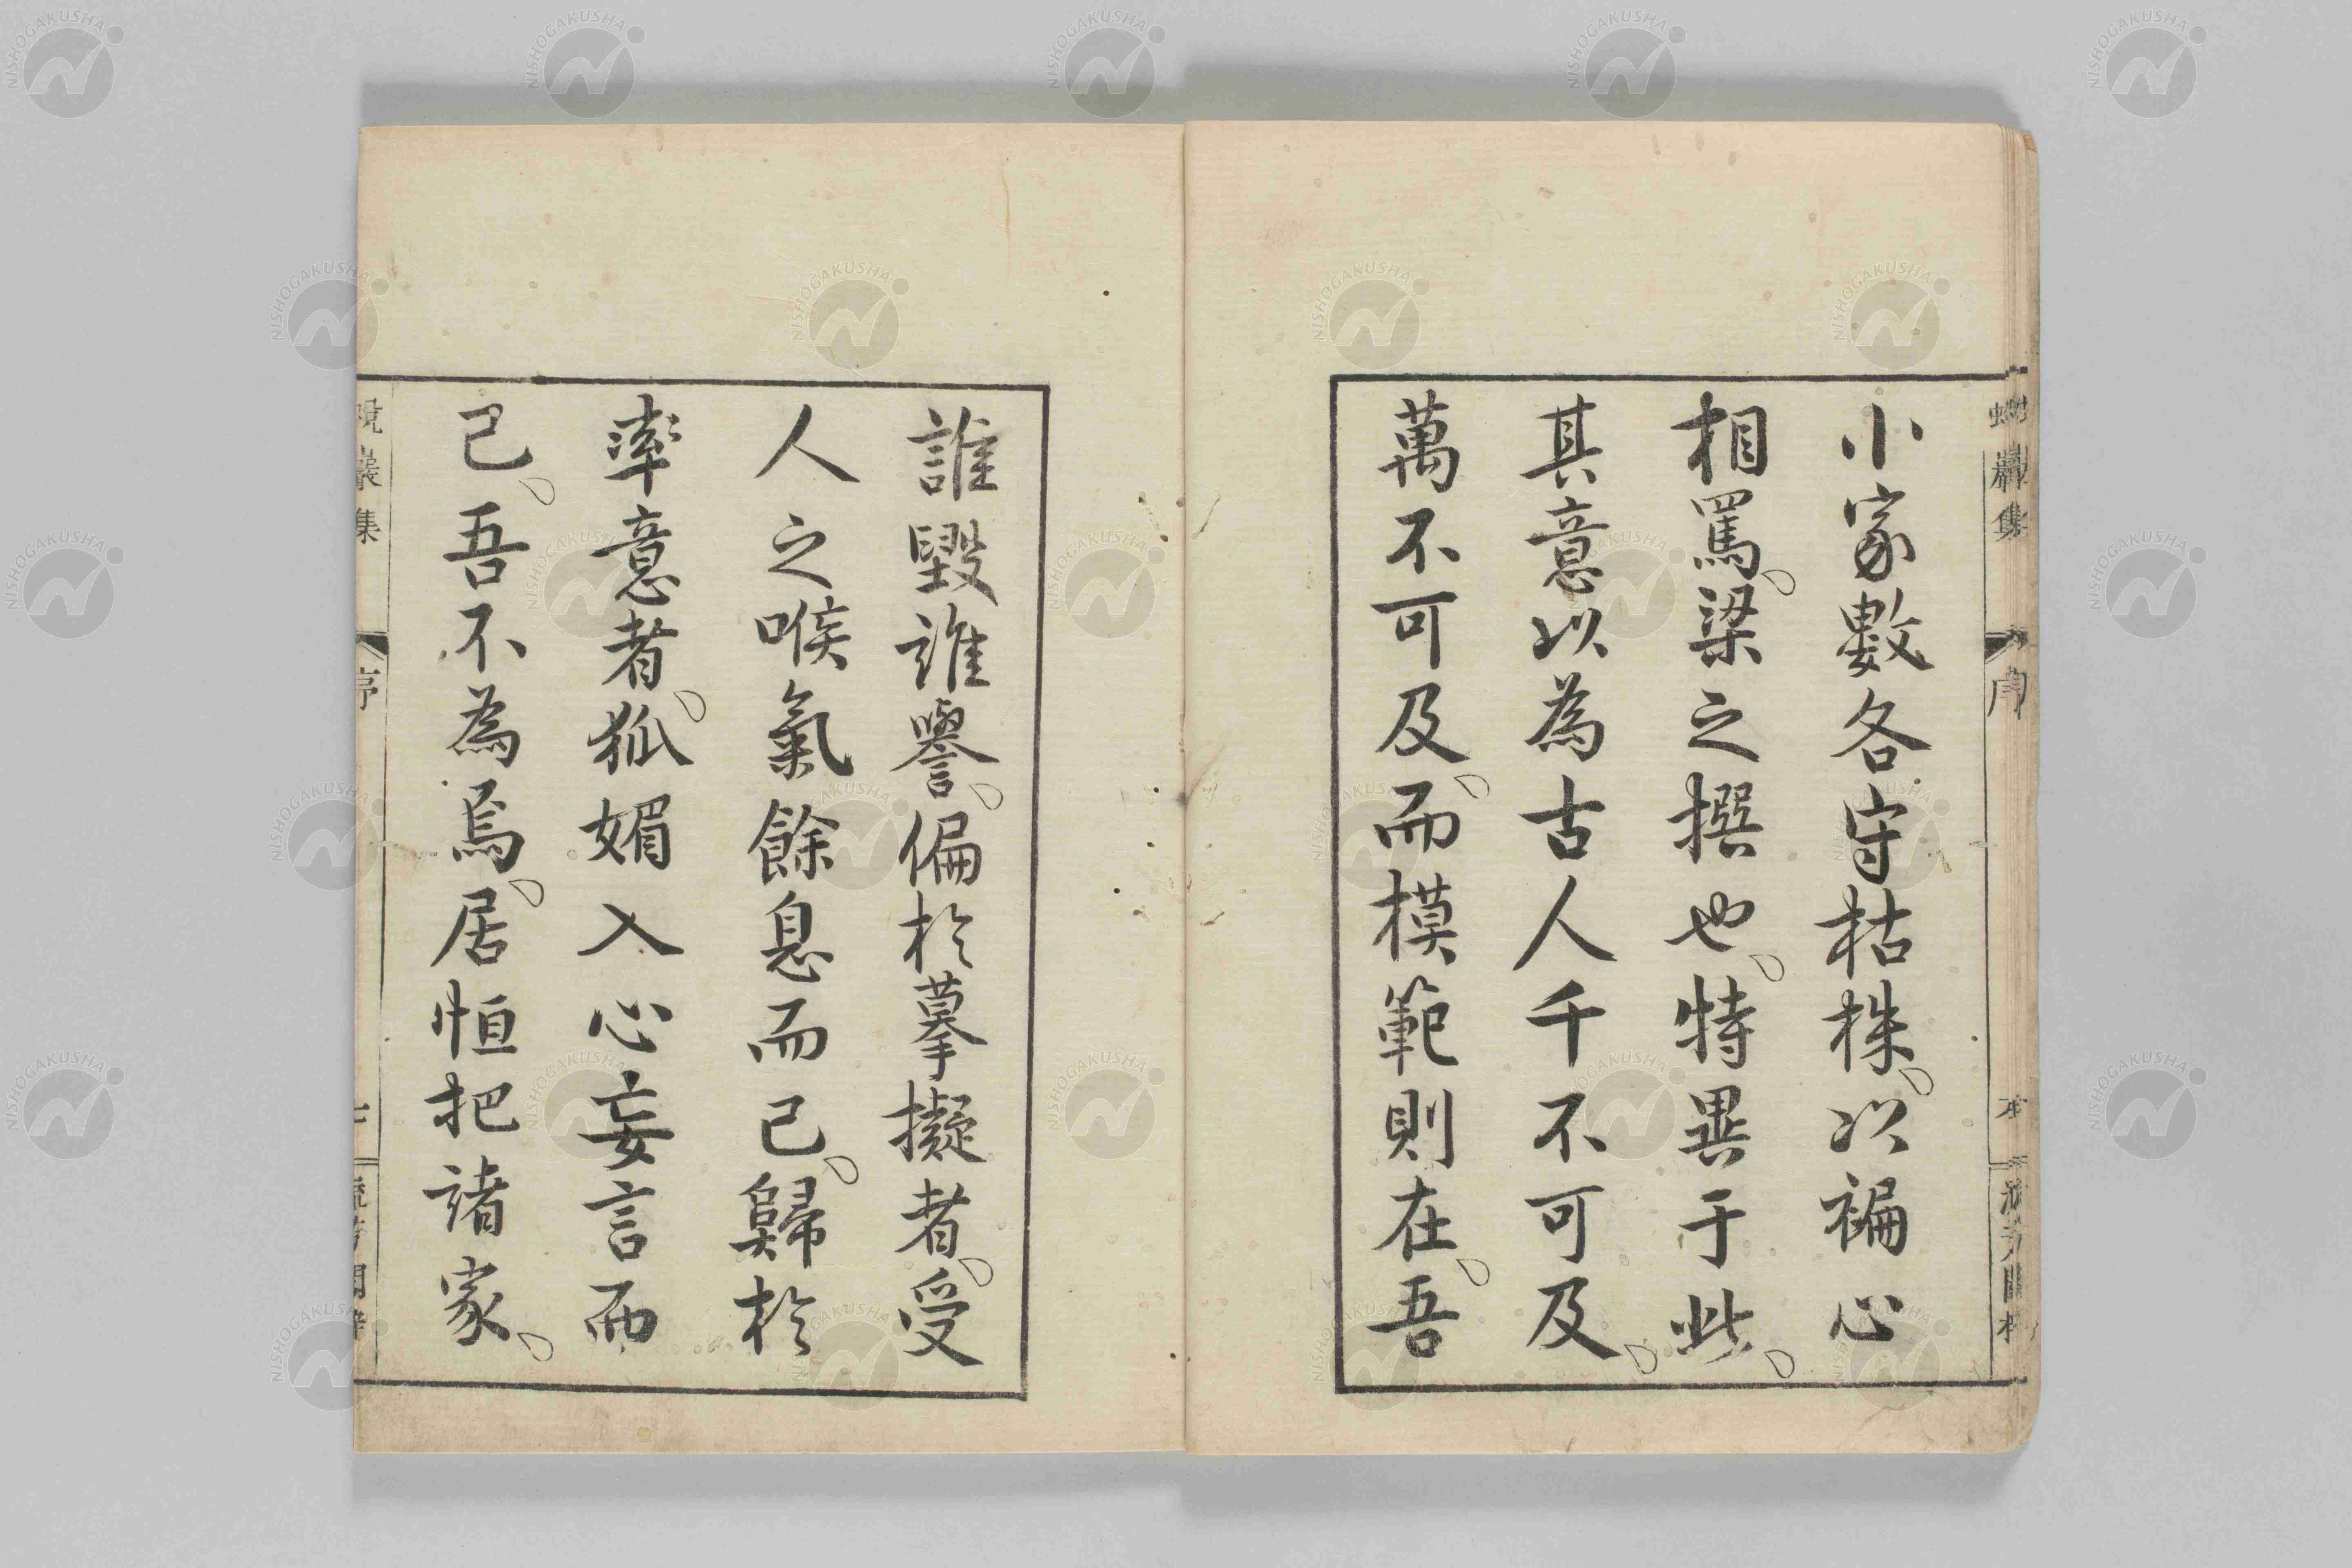 小家數各守枯株。以褊心
相罵。梁之撰也。特異于此。
其意以為古人千不可及。
萬不可及。而模範則在。吾
誰毀誰譽。偏於摹擬者。受
人之喉氣餘息而已。歸於
率意者。狐媚入心妄言而
已。吾不為焉。居恒把諸家。
巖集
序
NISHOGAKUSHA